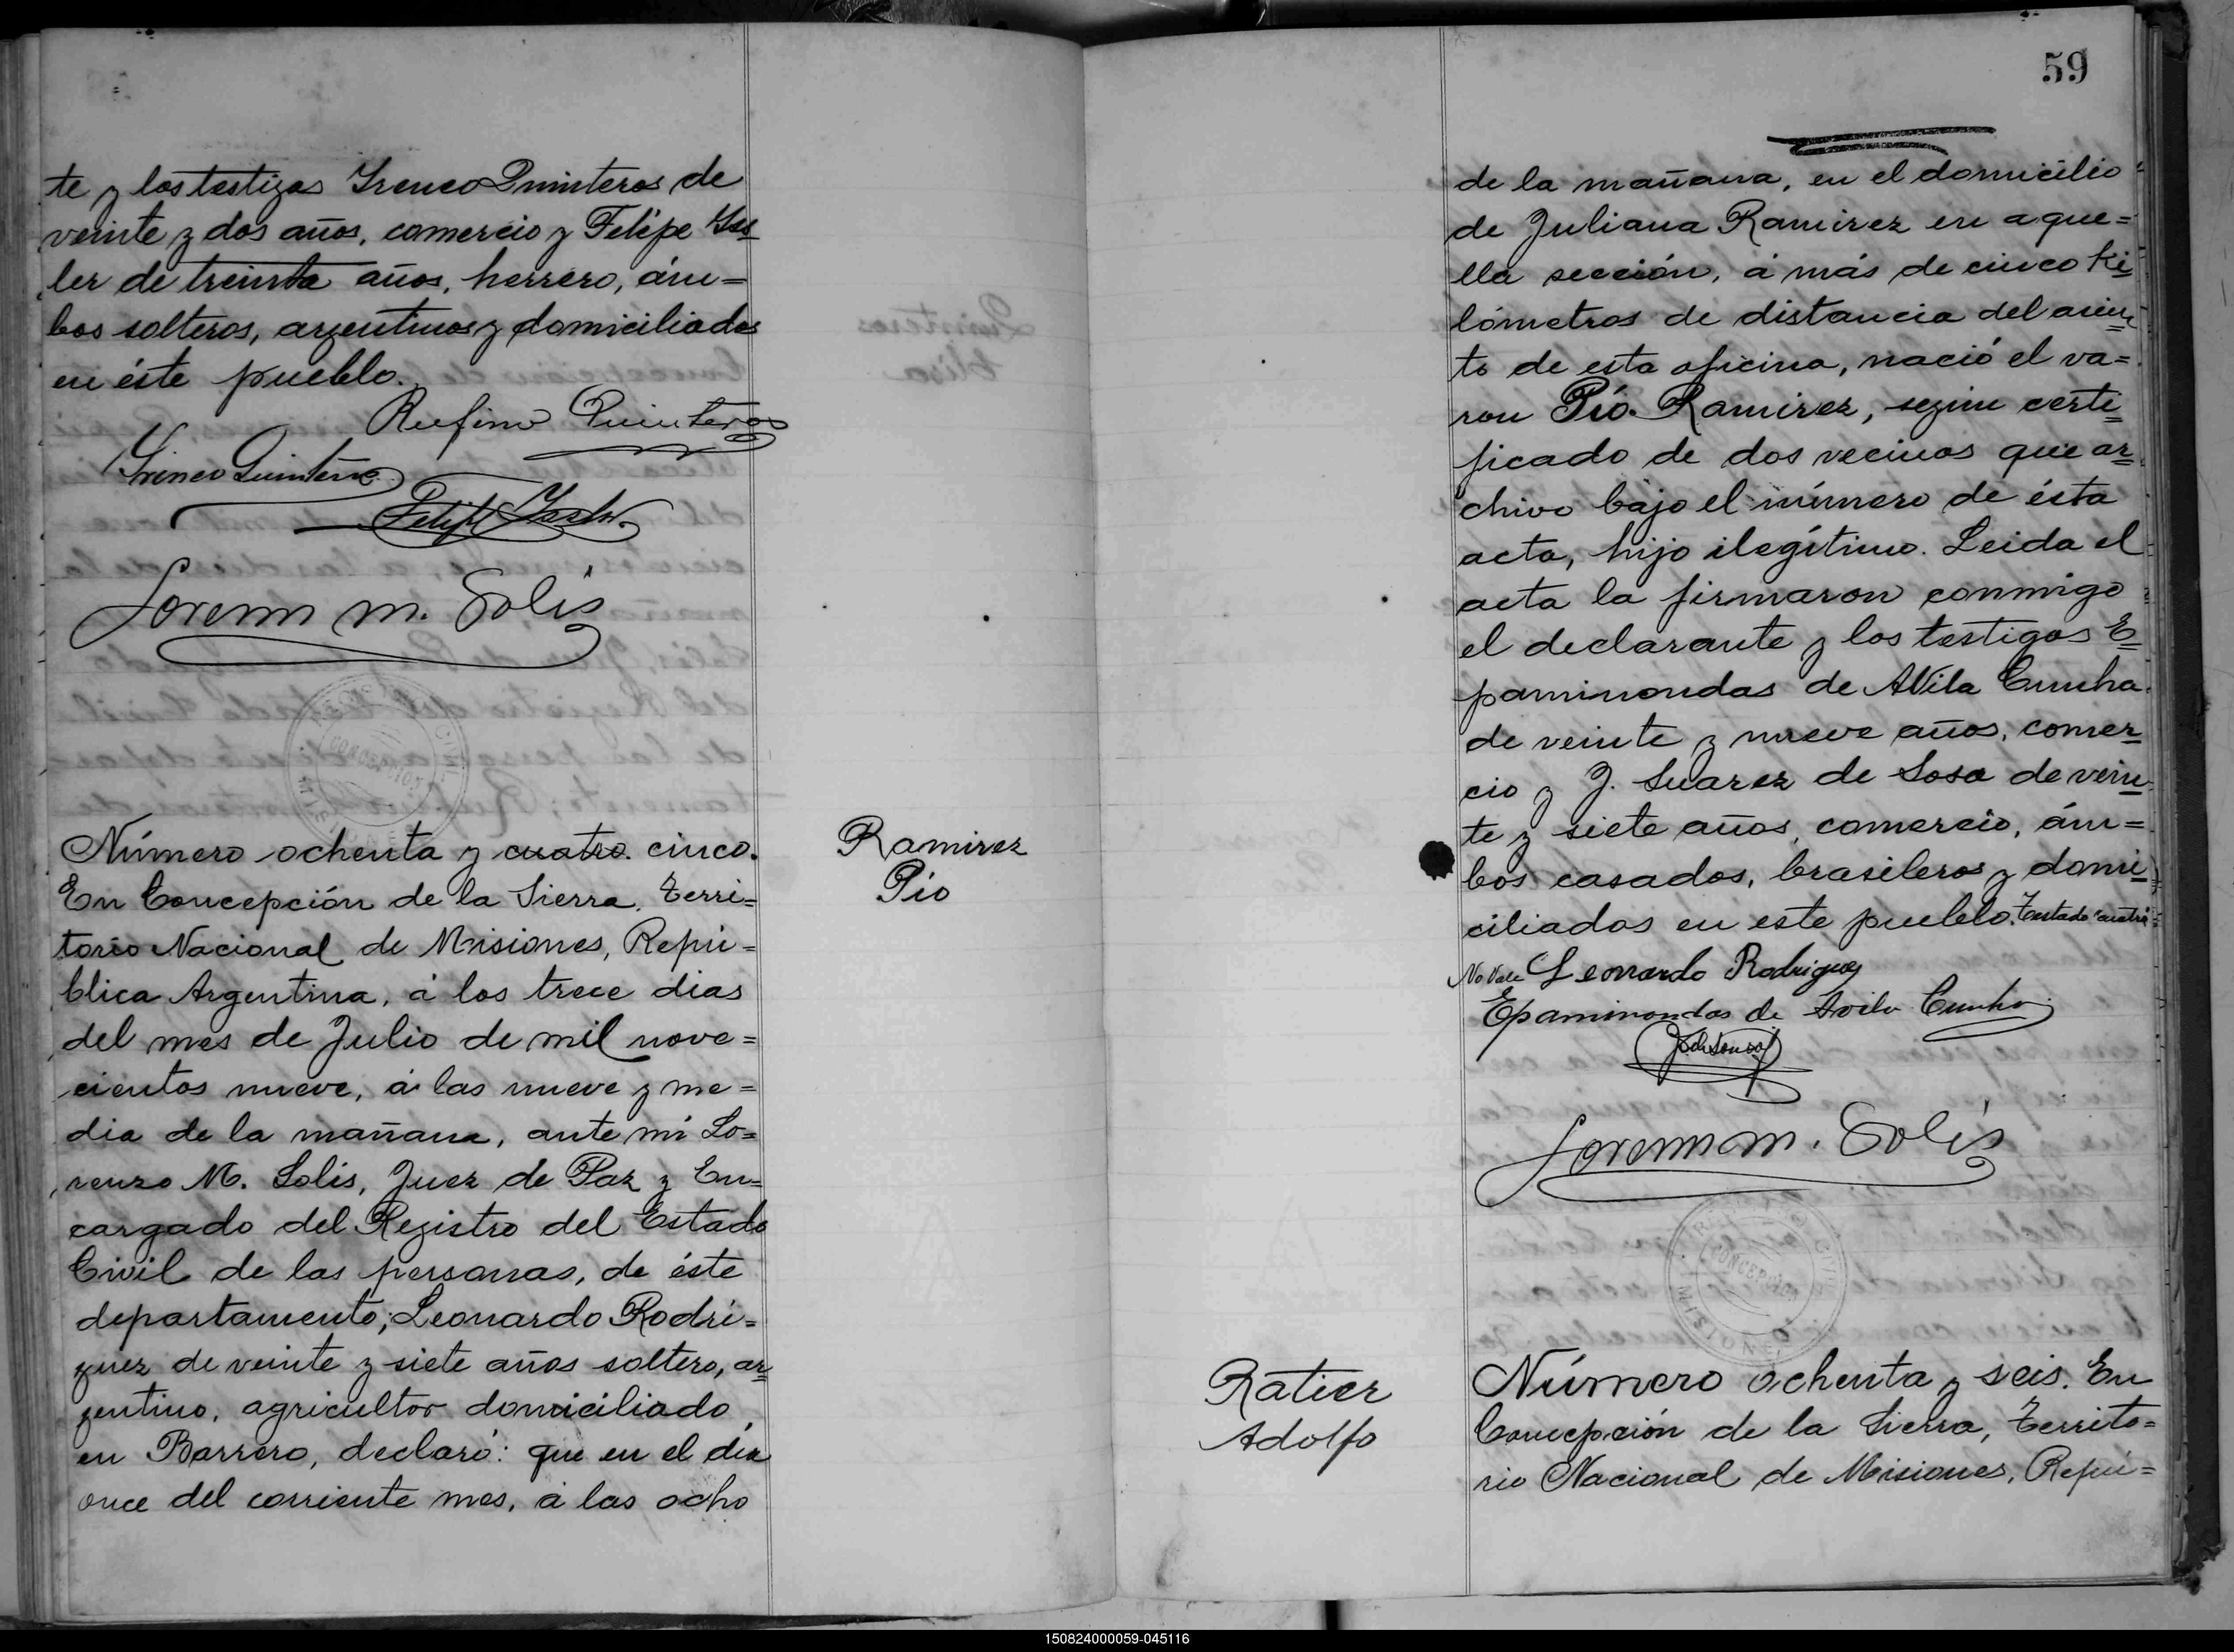 te y los testigos Ireneo Quinteros de
veinte y dos años, comercio y Felipe Iss
ler de treinta años, herrero, ám=
bos solteros, argentinos y domiciliados
en éste pueblo.
Rufino Quinteros
Irineo Quinteros
Felipe Issler
Lorenzo M. Solis
REGISTRO CIVIL
CONCEPCION
MISIONES
Número ochenta y cuatro. cinco.
En Concepción de la Sierra, Terri=
torio Nacional de Misiones, Repú=
blica Argentina, á los trece dias
del mes de Julio de mil nove=
cientos nueve, á las nueve y me=
dia de la mañana, ante mí Lo=
renzo M. Solis, Juez de Paz y En=
cargado del Registro del Estado
Civil de las personas, de éste
departamento; Leonardo Rodri=
guez de veinte y siete años soltero, ar
gentino, agricultor domiciliado
en Barrero, declaró: que en el día
once del corriente mes, á las ocho
Ramirez
Pio
59
de la mañana, en el domicilio
de Juliana Ramirez en aque=
lla sección, á más de cinco ki
lómetros de distancia del asien
to de esta oficina, nació el va=
ron Pío Ramirez, segun certi
ficado de dos vecinos que ar
chivo bajo el número de ésta
acta, hijo ilegítimo. Leida el
acta la firmaron conmigo
el declarante y los testigos E
paminondas de Avila Cunha
de veinte y nueve años, comer
cio y J. Suarez de Sosa de vein
te y siete años, comercio, ám=
bos casados, brasileros y domi
ciliados en este pueblo. Testado "cuatro"
No Vale Leonardo Rodriguez
Epaminondas de Avila Cunha
Lorenzo M. Solis
REGISTRO CIVIL
CONCEPCION
MISIONES
Ratier
Adolfo
Número ochenta y seis. En
Concepción de la Sierra, Territo=
rio Nacional de Misiones, Repú=
150824000059-045116